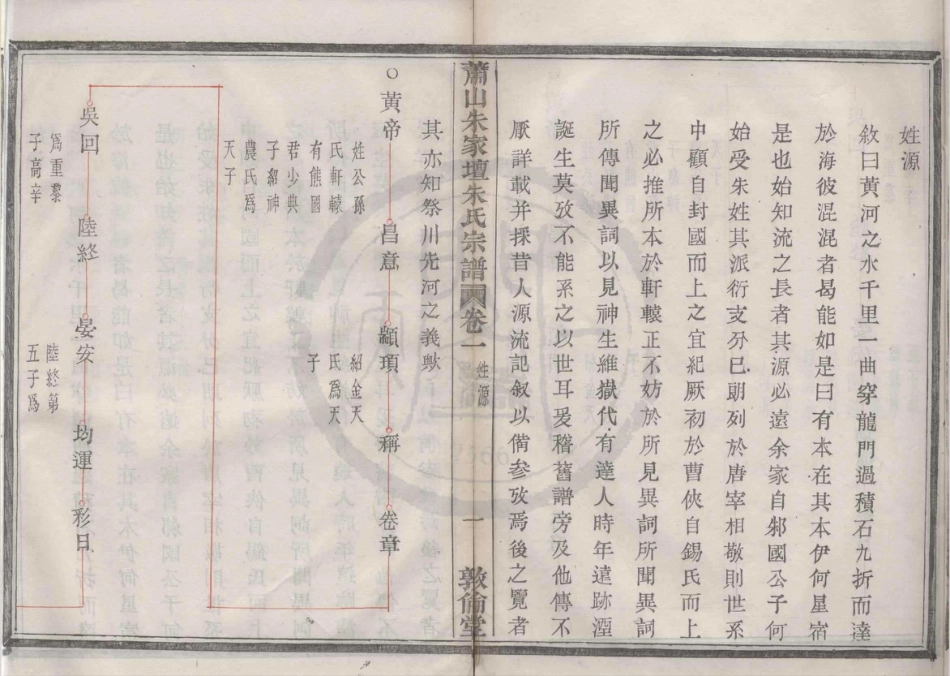 姓源
敘曰黃河之水千里一曲穿龍門過積石九折而達
於海彼混混者曷能如是曰有本在其本伊何星宿
是也始知流之長者其源必遠余家自邾國公子何
始受朱姓其派衍支分已朗列於唐宰相敬則世系
中顧自封國而上之宜紀厥初於曹俠自錫氏而上
之必推所本於軒轅正不妨於所見異詞所聞異詞
所傳聞異詞以見神生維嶽代有達人時年遠跡湮
誕生莫攷不能系之以世耳爰稽舊譜旁及他傳不
厭詳載并採昔人源流記敘以備參攷焉後之覽者
蕭山朱家壇朱氏宗譜 卷一 姓源 一 敦倫堂
其亦知祭川先河之義歟
○黃帝 昌意 顓頊 稱 卷章
姓公孫
氏軒轅
有熊國
君少典
子紹神
農氏爲
天子
紹金天
氏爲天
子
吳回 陸終 晏安 均運 彩日
爲重黎
子高辛
陸終第
五子爲